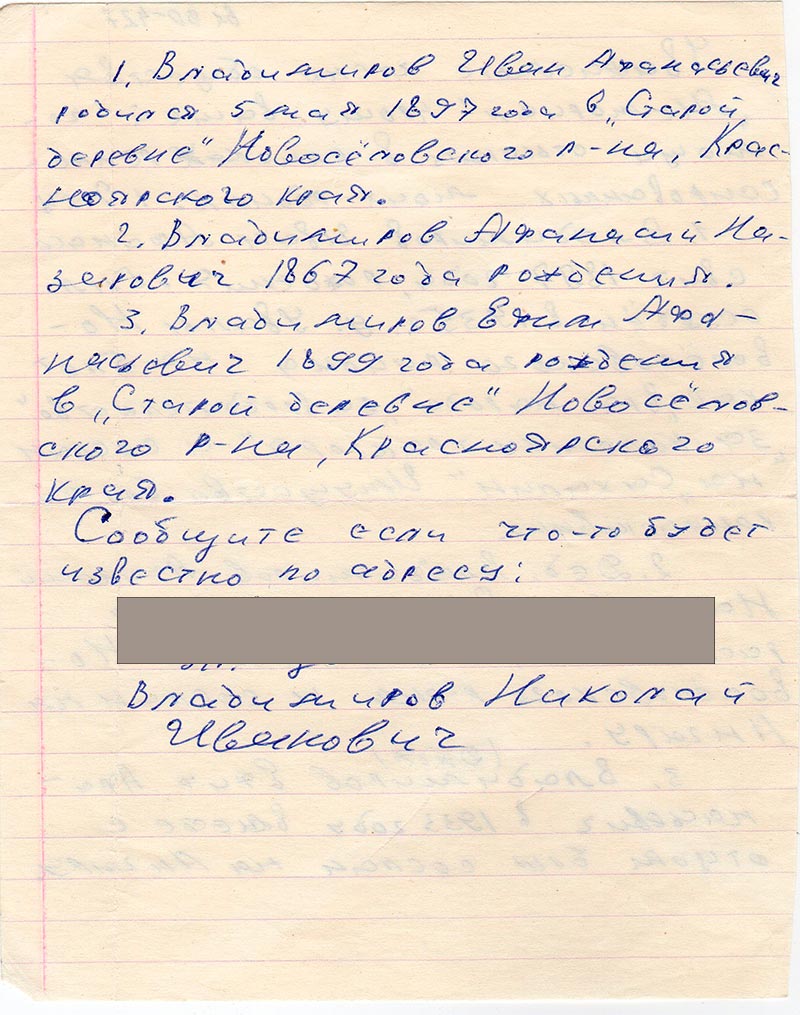 1. Владимиров Иван Афанасьевич
родился 5 мая 1897 года в „Старой
деревне" Новосёловского р-на, Крас-
ноярского края.
2. Владимиров Афанасий На-
зарович 1867 года рождения.
3. Владимиров Ефим Афа-
насьевич 1899 года рождения
в „Старой деревне" Новосёлов-
ского р-на, Красноярского
края.
Сообщите если что-то будет
известно по адресу:
Владимиров Николай
Иванович